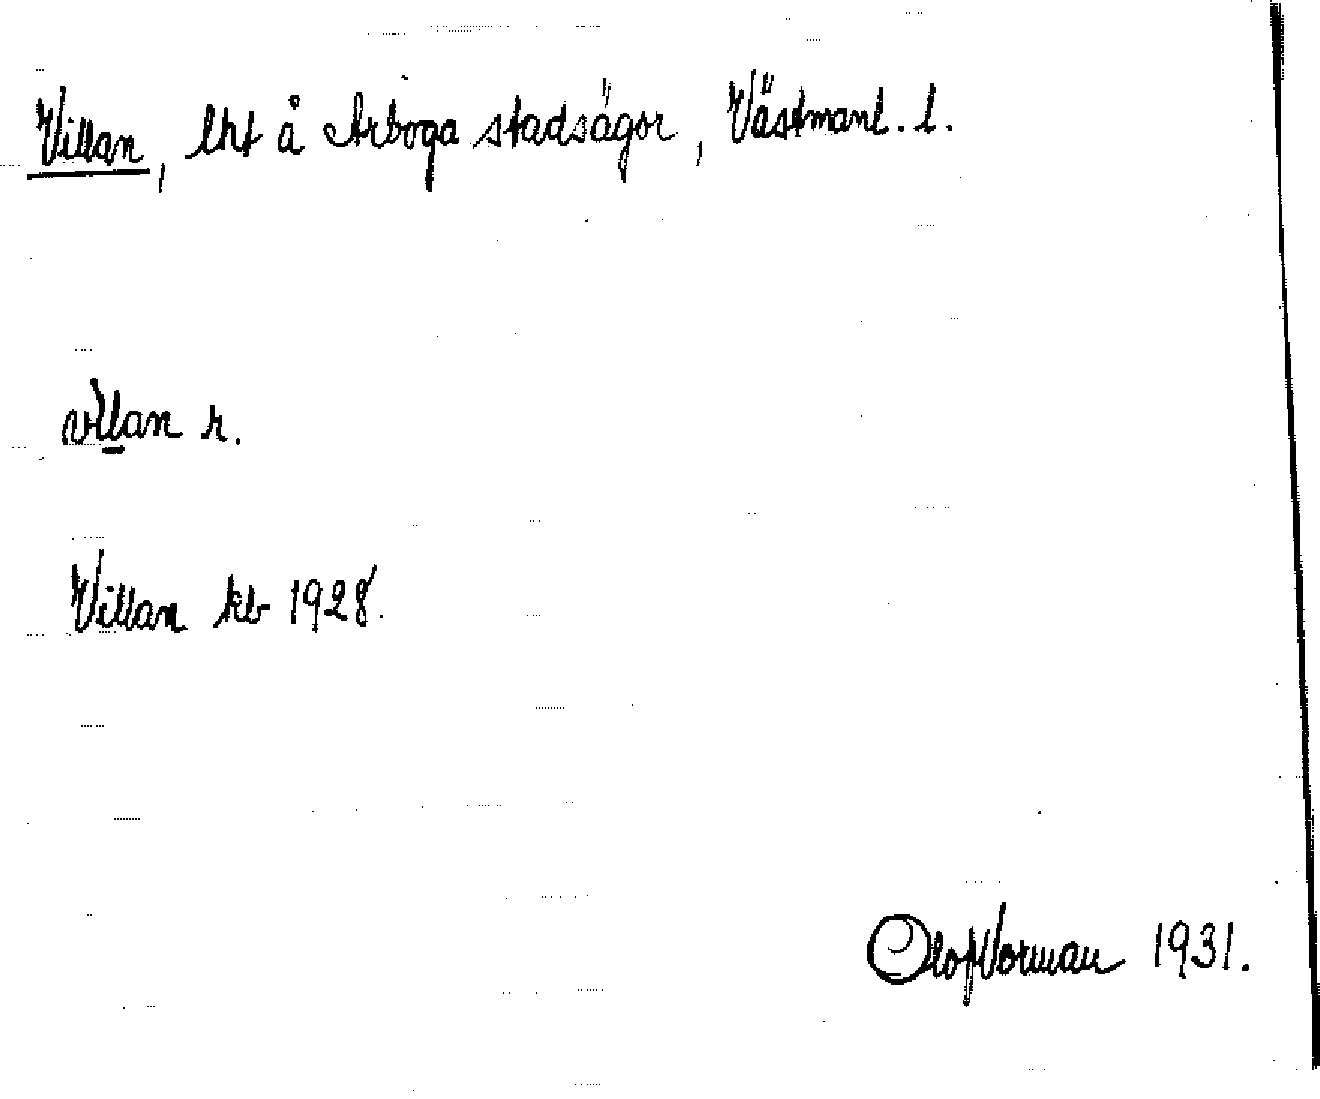 Villan, lht å Arboga stadsägor, Västmanl. l.
vìllan r.
Villan kb 1928.
Olof Norman 1931.